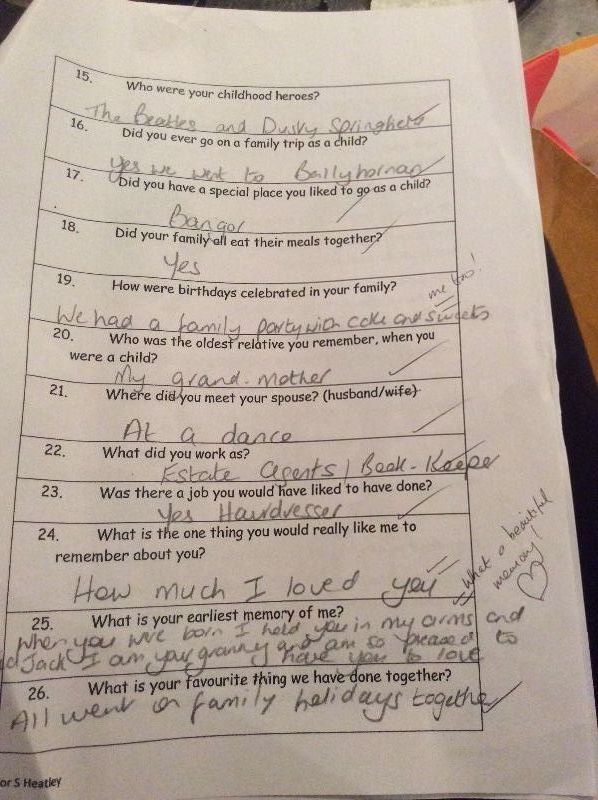 15. Who were your childhood heroes?
The Beatles and Dusty Springfield
16. Did you ever go on a family trip as a child?
Yes we went to Ballyhornan
17. Did you have a special place you liked to go as a child?
Bangor
18. Did your family all eat their meals together?
Yes
19. How were birthdays celebrated in your family?
me too!
We had a family party with cake and sweets
20. Who was the oldest relative you remember, when you
were a child?
My grand-mother
21. Where did you meet your spouse? (husband/wife)
At a dance
22. What did you work as?
Estate Agents / Book-Keeper
23. Was there a job you would have liked to have done?
Yes Hairdresser
24. What is the one thing you would really like me to
remember about you?
How much I loved you
What a beautiful
memory!
25. What is your earliest memory of me?
When you were born I held you in my arms and
Jack I am your granny and am so pleased to
have you to love
26. What is your favourite thing we have done together?
All went on family holidays together
or S Heatley